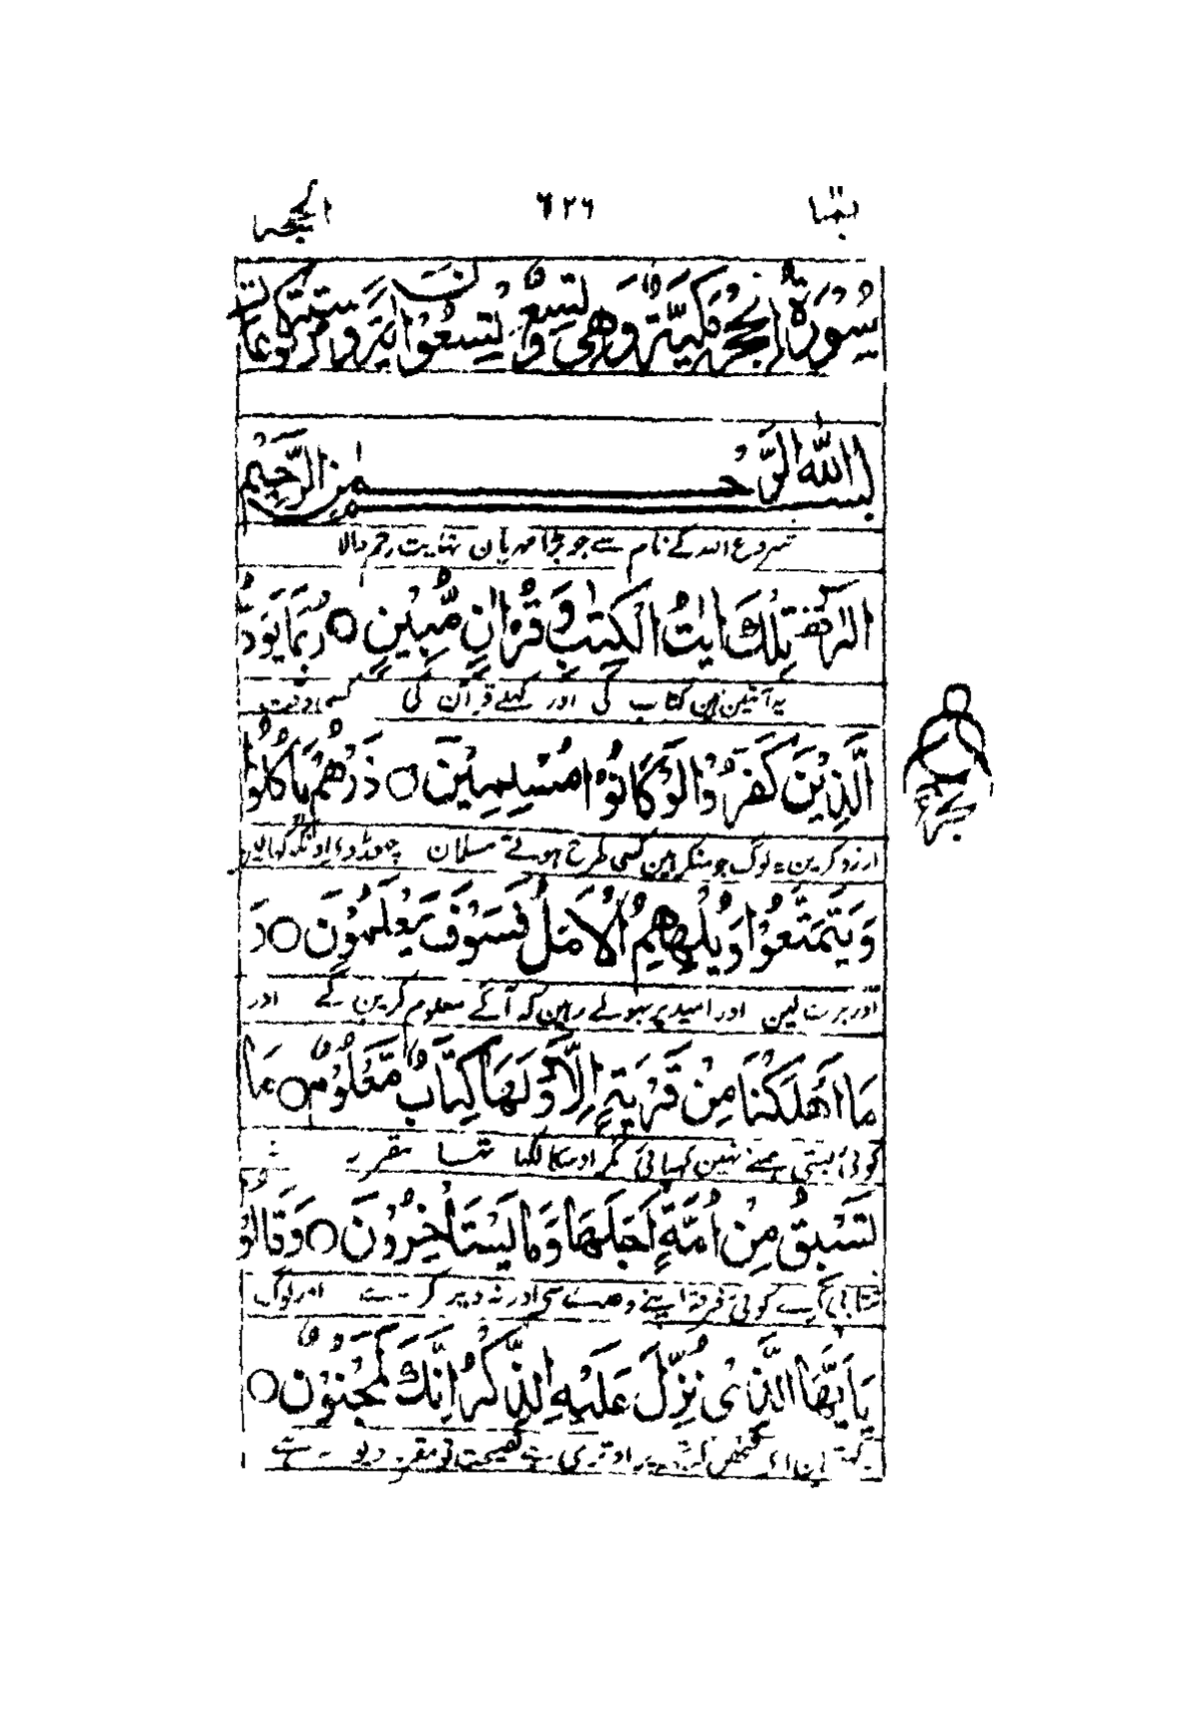 ربما ٦٢٦ الحجر
سُوْرَةُ الْحِجْرِ مَكِّيَّةٌ وَّهِيَ تِسْعٌ وَّتِسْعُوْنَ اٰيَةً وَّسِتُّ رُكُوْعَاتٍ
بِسْمِ اللّٰهِ الرَّحْمٰنِ الرَّحِيْمِ
شروع اللہ کے نام سے جو بڑا مہربان نہایت رحم والا
الٓرٰ قف تِلْكَ اٰيٰتُ الْكِتٰبِ وَ قُرْاٰنٍ مُّبِيْنٍ ○ رُبَمَا يَوَدُّ
یہ آیتین ہین کتاب کی اور کھلے قرآن کی کسی وقت
الَّذِيْنَ كَفَرُوْا لَوْ كَانُوْا مُسْلِمِيْنَ ○ ذَرْهُمْ يَاْكُلُوْا
ارزو کرین یہ لوگ جو منکر ہین کسی طرح ہوتے مسلمان چھوڑ دے اونکو کھالین
وَ يَتَمَتَّعُوْا وَ يُلْهِهِمُ الْاَمَلُ فَسَوْفَ يَعْلَمُوْنَ ○ وَ
اور برت لین اور امید پر بھولے رہین کہ آگے معلوم کرین گے اور
مَا اَهْلَكْنَا مِنْ قَرْيَةٍ اِلَّا وَ لَهَا كِتَابٌ مَّعْلُوْمٌ ○ مَا
کوئی بستی ہمنے نہین کھپائی مگر اوسکا لکھا تھا مقرر نہ
تَسْبِقُ مِنْ اُمَّةٍ اَجَلَهَا وَ مَا يَسْتَاْخِرُوْنَ ○ وَ قَالُوْا
شتابی کرے کوئی فرقہ اپنے وعدے سے اور نہ دیر کرے اور لوگ
يٰاَيُّهَا الَّذِيْ نُزِّلَ عَلَيْهِ الذِّكْرُ اِنَّكَ لَمَجْنُوْنٌ ○
کہتے ہین اے شخص کہ تجھ پر اوتری ہے نصیحت تو مقرر دیوانہ ہے